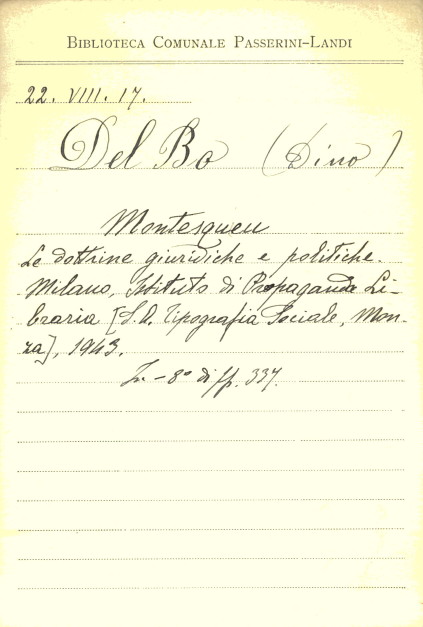 BIBLIOTECA COMUNALE PASSERINI-LANDI
22. VIII. 17.
Del Bo (Dino)
Montesqueu
Le dottrine giuridiche e politiche.
Milano, Istituto di Propaganda Li-
braria [S.A. Tipografia Sociale, Mon-
za], 1943.
In-8° di pp. 337.